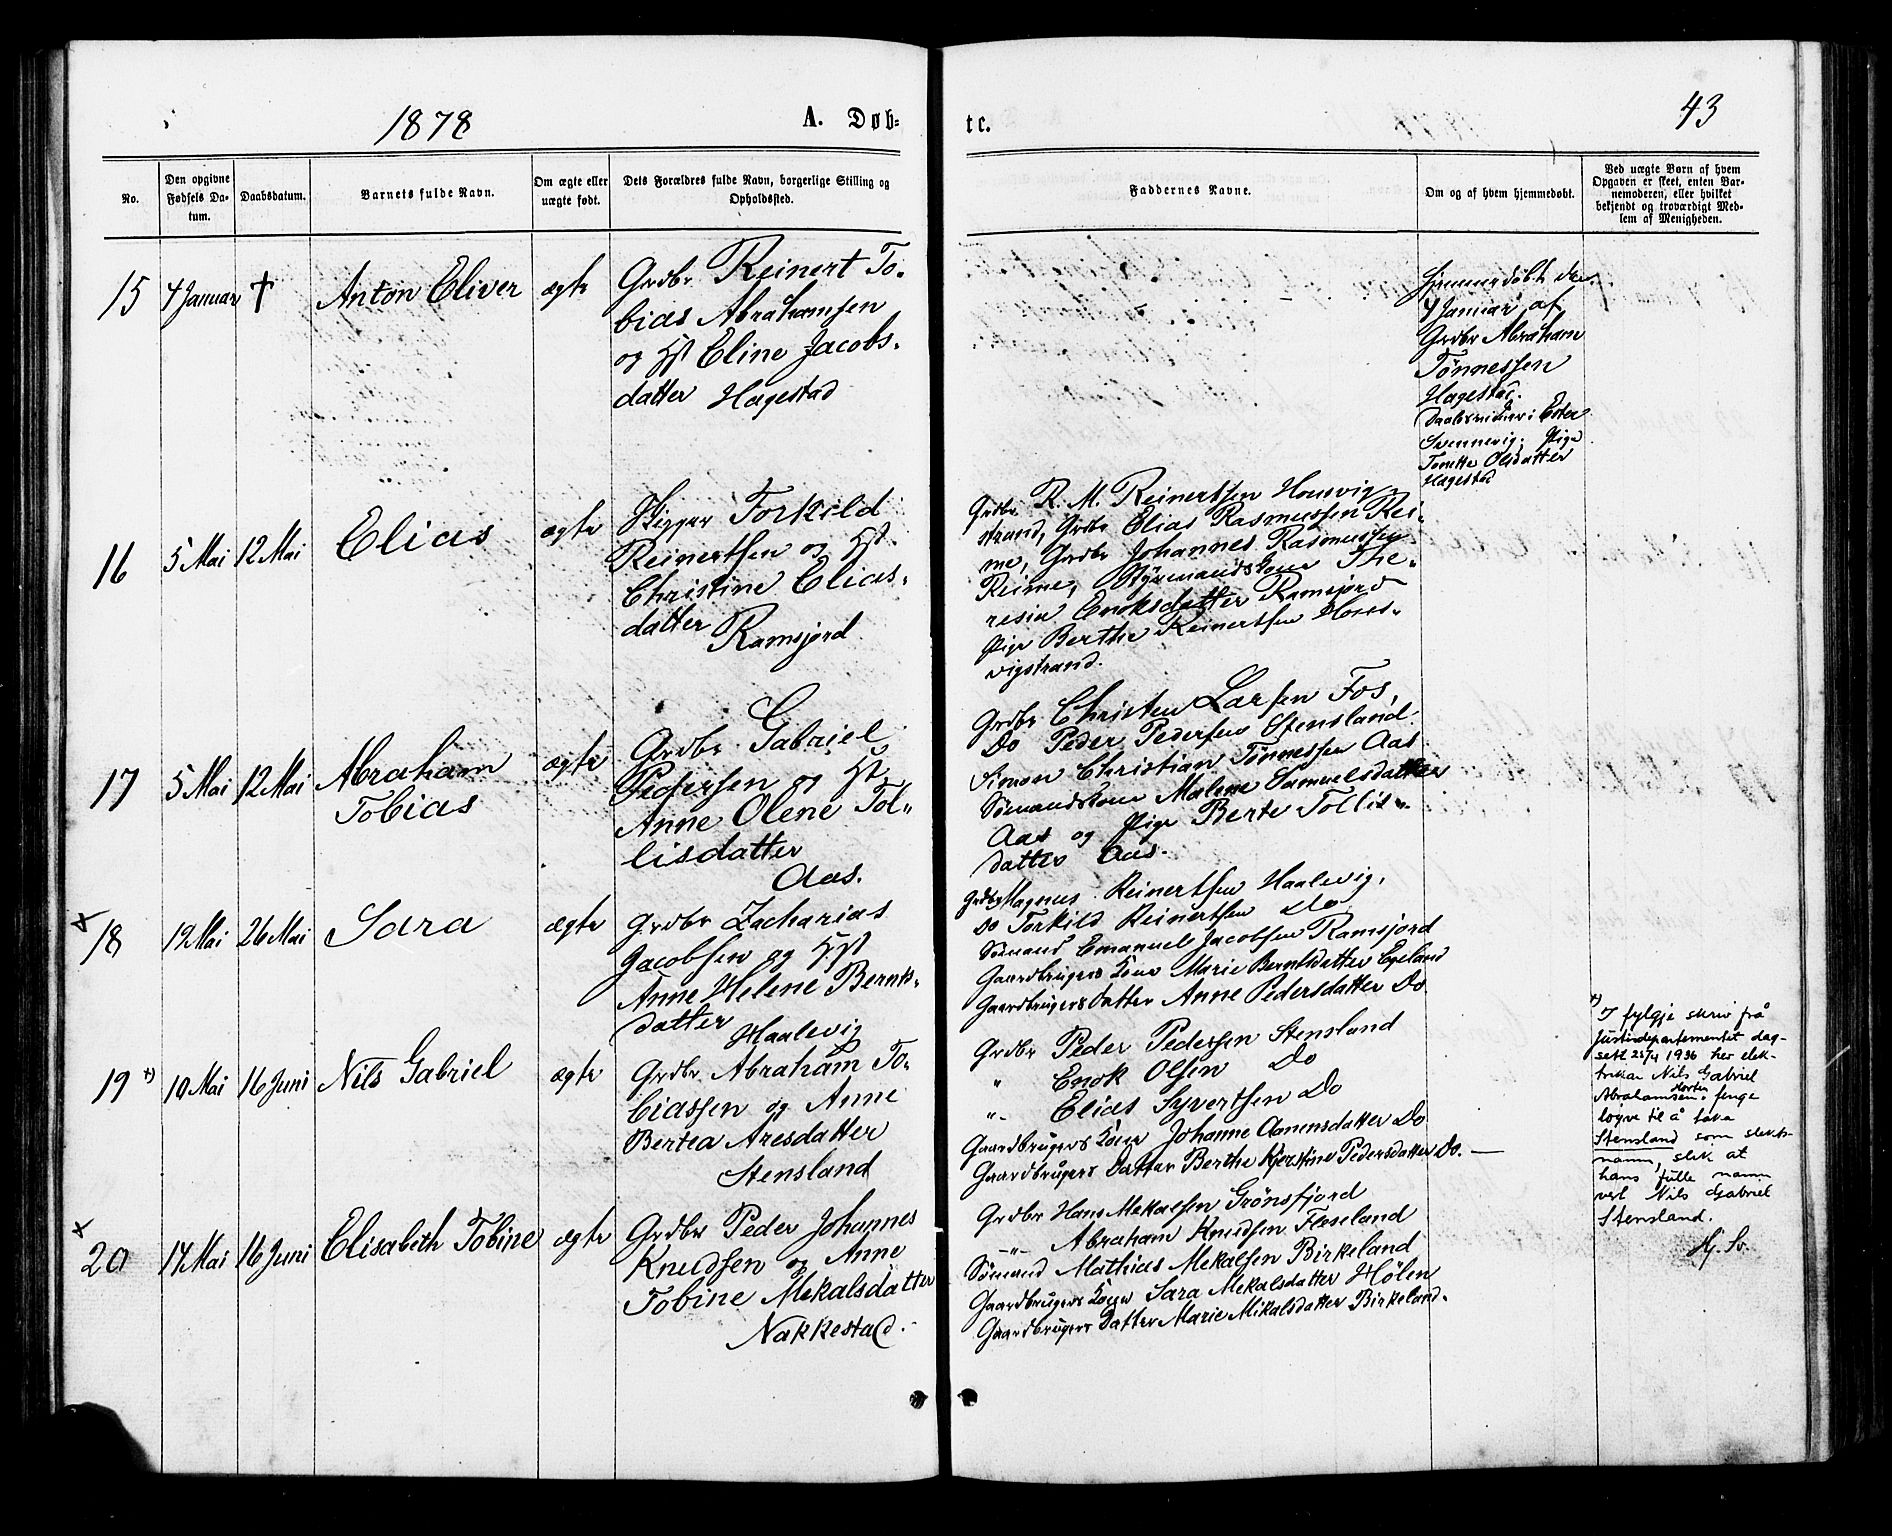 1878
A. Døb-
te.
43
No.
Den opgivne Fødsels Da-
tum.
Daabsdatum.
Barnets fulde Navn.
Om ægte eller
uægte født.
Dets Forældres fulde Navn, borgerlige Stilling og
Opholdssted.
Faddernes Navne.
Om og af hvem hjemmedøbt.
Ved uægte Børn af hvem
Opgaven er skeet, enten Bar-
nemoderen, eller hvilket
bekjendt og troværdigt Med-
lem af Menigheden.
15
4 Januar
†
Anton Eliver
ægte
Grdbr Reinert To-
bias Abrahamsen
og Hst Eline Jacobs-
datter Hagestad
Hjemmedøbt den
4 Januar af
Grdbr Abraham
Tønnessen
Hagestad.
Daabsvidner: Ester
Svennevig, Pige
Tonette Olsdatter
Hagestad
16
5 Mai
12 Mai
Elias
ægte
Skipper Torkild
Reinertsen og Hst
Christine Elias-
datter
Ramsjord
Grdbr R. M. Reinertsen Housvig-
strand, Grdbr Elias Rasmussen Rei-
me, Grdbr Johannes Rasmussen
Reime, Styrmandskone The-
resia Enoksdatter Ramsjord
Pige Berthe Reinertsen Hous-
vigstrand.
17
5 Mai
12 Mai
Abraham
Tobias
ægte
Grdbr Gabriel
Pedersen og Hst
Anne Olene Tol-
lisdatter
Aas.
Grdbr Christen Larsen Fos,
Do Peder Pedersen Stensland
Simon Christian Tønnessen Aas
Sømandskone Malene Samuelsdatter
Aas og Pige Berte Tollis-
datter Aas.
x
18
19 Mai
26 Mai
Sara
ægte
Grdbr Zacharias
Jacobsen og Hst
Anne Helene Bernts-
datter
Haalevig
Grdbr Magnus Reinertsen Haalevig,
Do Torkild Reinertsen Do
Sømand Emanuel Jacobsen Ramsjord
Gaardbrugers Kone Marie Berntsdatter Egeland
Gaardbrugers Datter Anne Pedersdatter Do
19 x)
10 Mai
16 Juni
Nils Gabriel
ægte
Grdbr Abraham To-
biassen og Anne
Bertea Aresdatter
Stensland
Grdbr Peder Pedersen Stensland
" Enok Olsen Do
"- Elias Syvertsen Do
Gaardbrugers Kone Johanne Aanensdatter Do
Gaardbrugers Datter Berthe Kjerstine Pedersdatter Do. —
x) I fylgje skriv frå
Justisdepartementet dag-
sett 25/4 1936 her elek-
trikar Nils Gabriel
Abrahamsen, fenge
løyve til å taka
Stensland som slekts-
namn, slik at
hans fulle namn
vert Nils Gabriel
Stensland.
Hj. Sv.
x
20
14 Mai
16 Juni
Elisabeth Tobine
ægte
Grdbr Peder Johannes
Knudsen og Anne
Tobine Mekalsdatter
Nakkestad.
Grdbr Hans Mekalsen Grønsfjord
-"- Abraham Knudsen Floseland
Sømand Mathias Mekalsen Birkeland
Gaardbrugers Kone Sara Mekalsdatter Hølen
Gaardbrugers Datter Marie Mikalsdatter Birkeland.